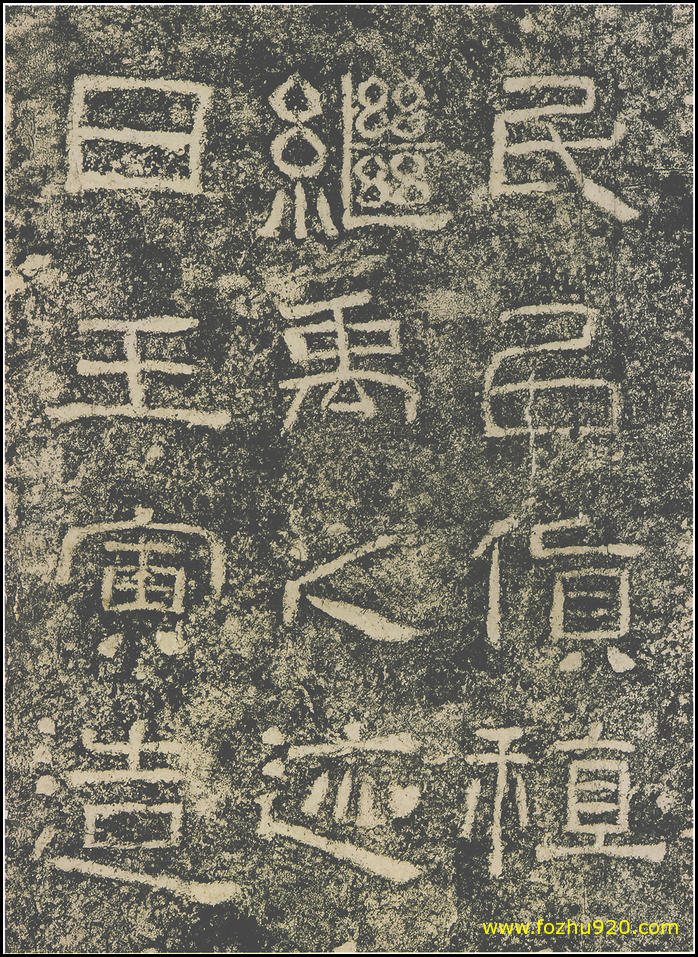 民偵稙
繼禹之迹
日王寅造
www.fozhu920.com